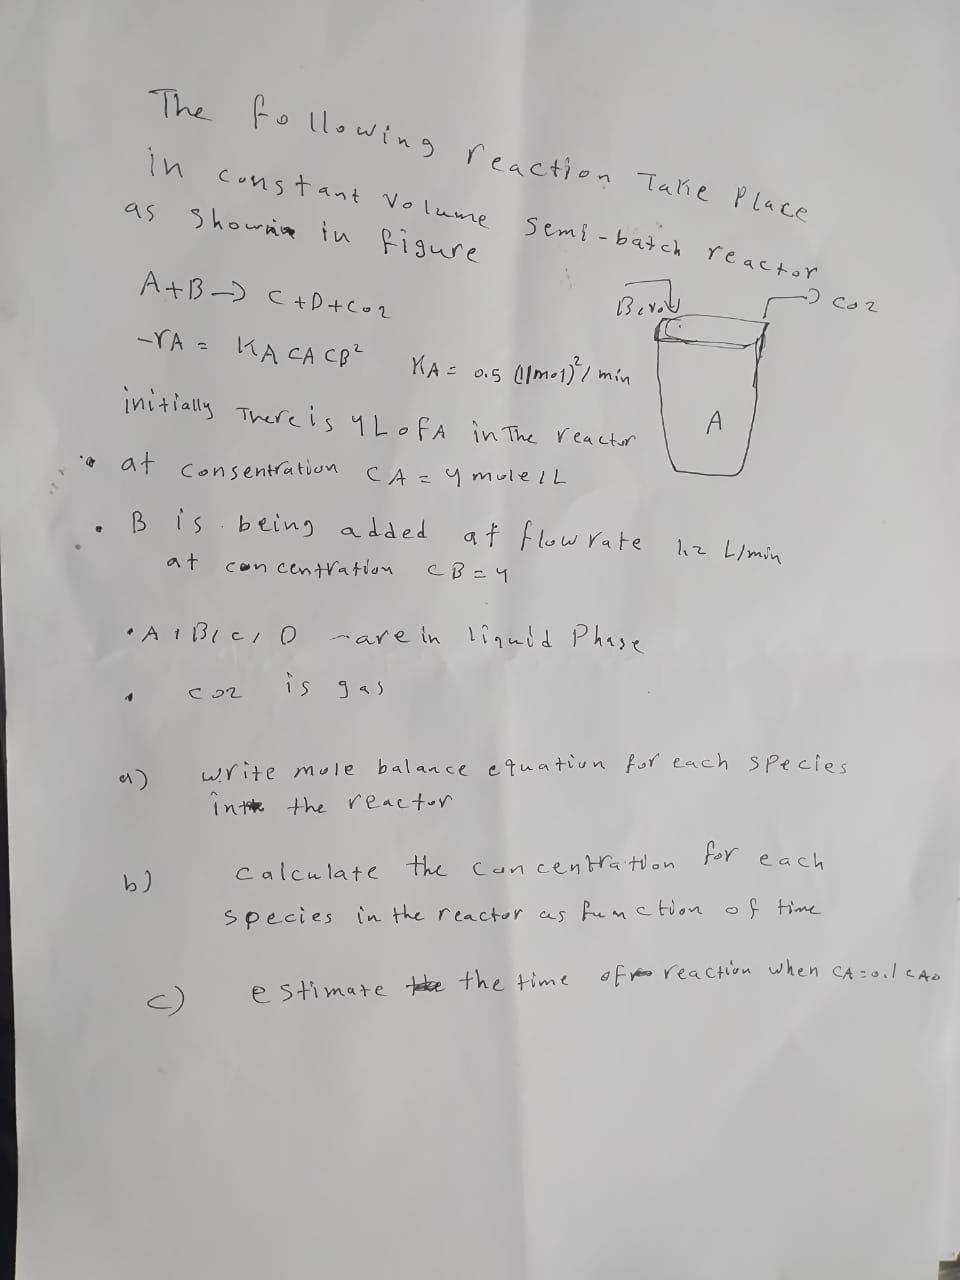 The following reaction Take Place
in constant volume semi-batch reactor
as shown in figure
A+B → C+D+CO2
B, vo
CO2
-rA = KA CA CB²
KA = 0.5 (l/mol)²/min
A
initially There is 4L of A in The reactor
at consentration CA = 4 mole/L
• B is being added at flow rate 1.2 L/min
at concentration CB = 4
• A, B, C, D are in liquid Phase
• CO2 is gas
a) write mole balance equation for each species
in the reactor
b) calculate the concentration for each
species in the reactor as function of time
c) estimate the time of reaction when CA = 0.1 CA0